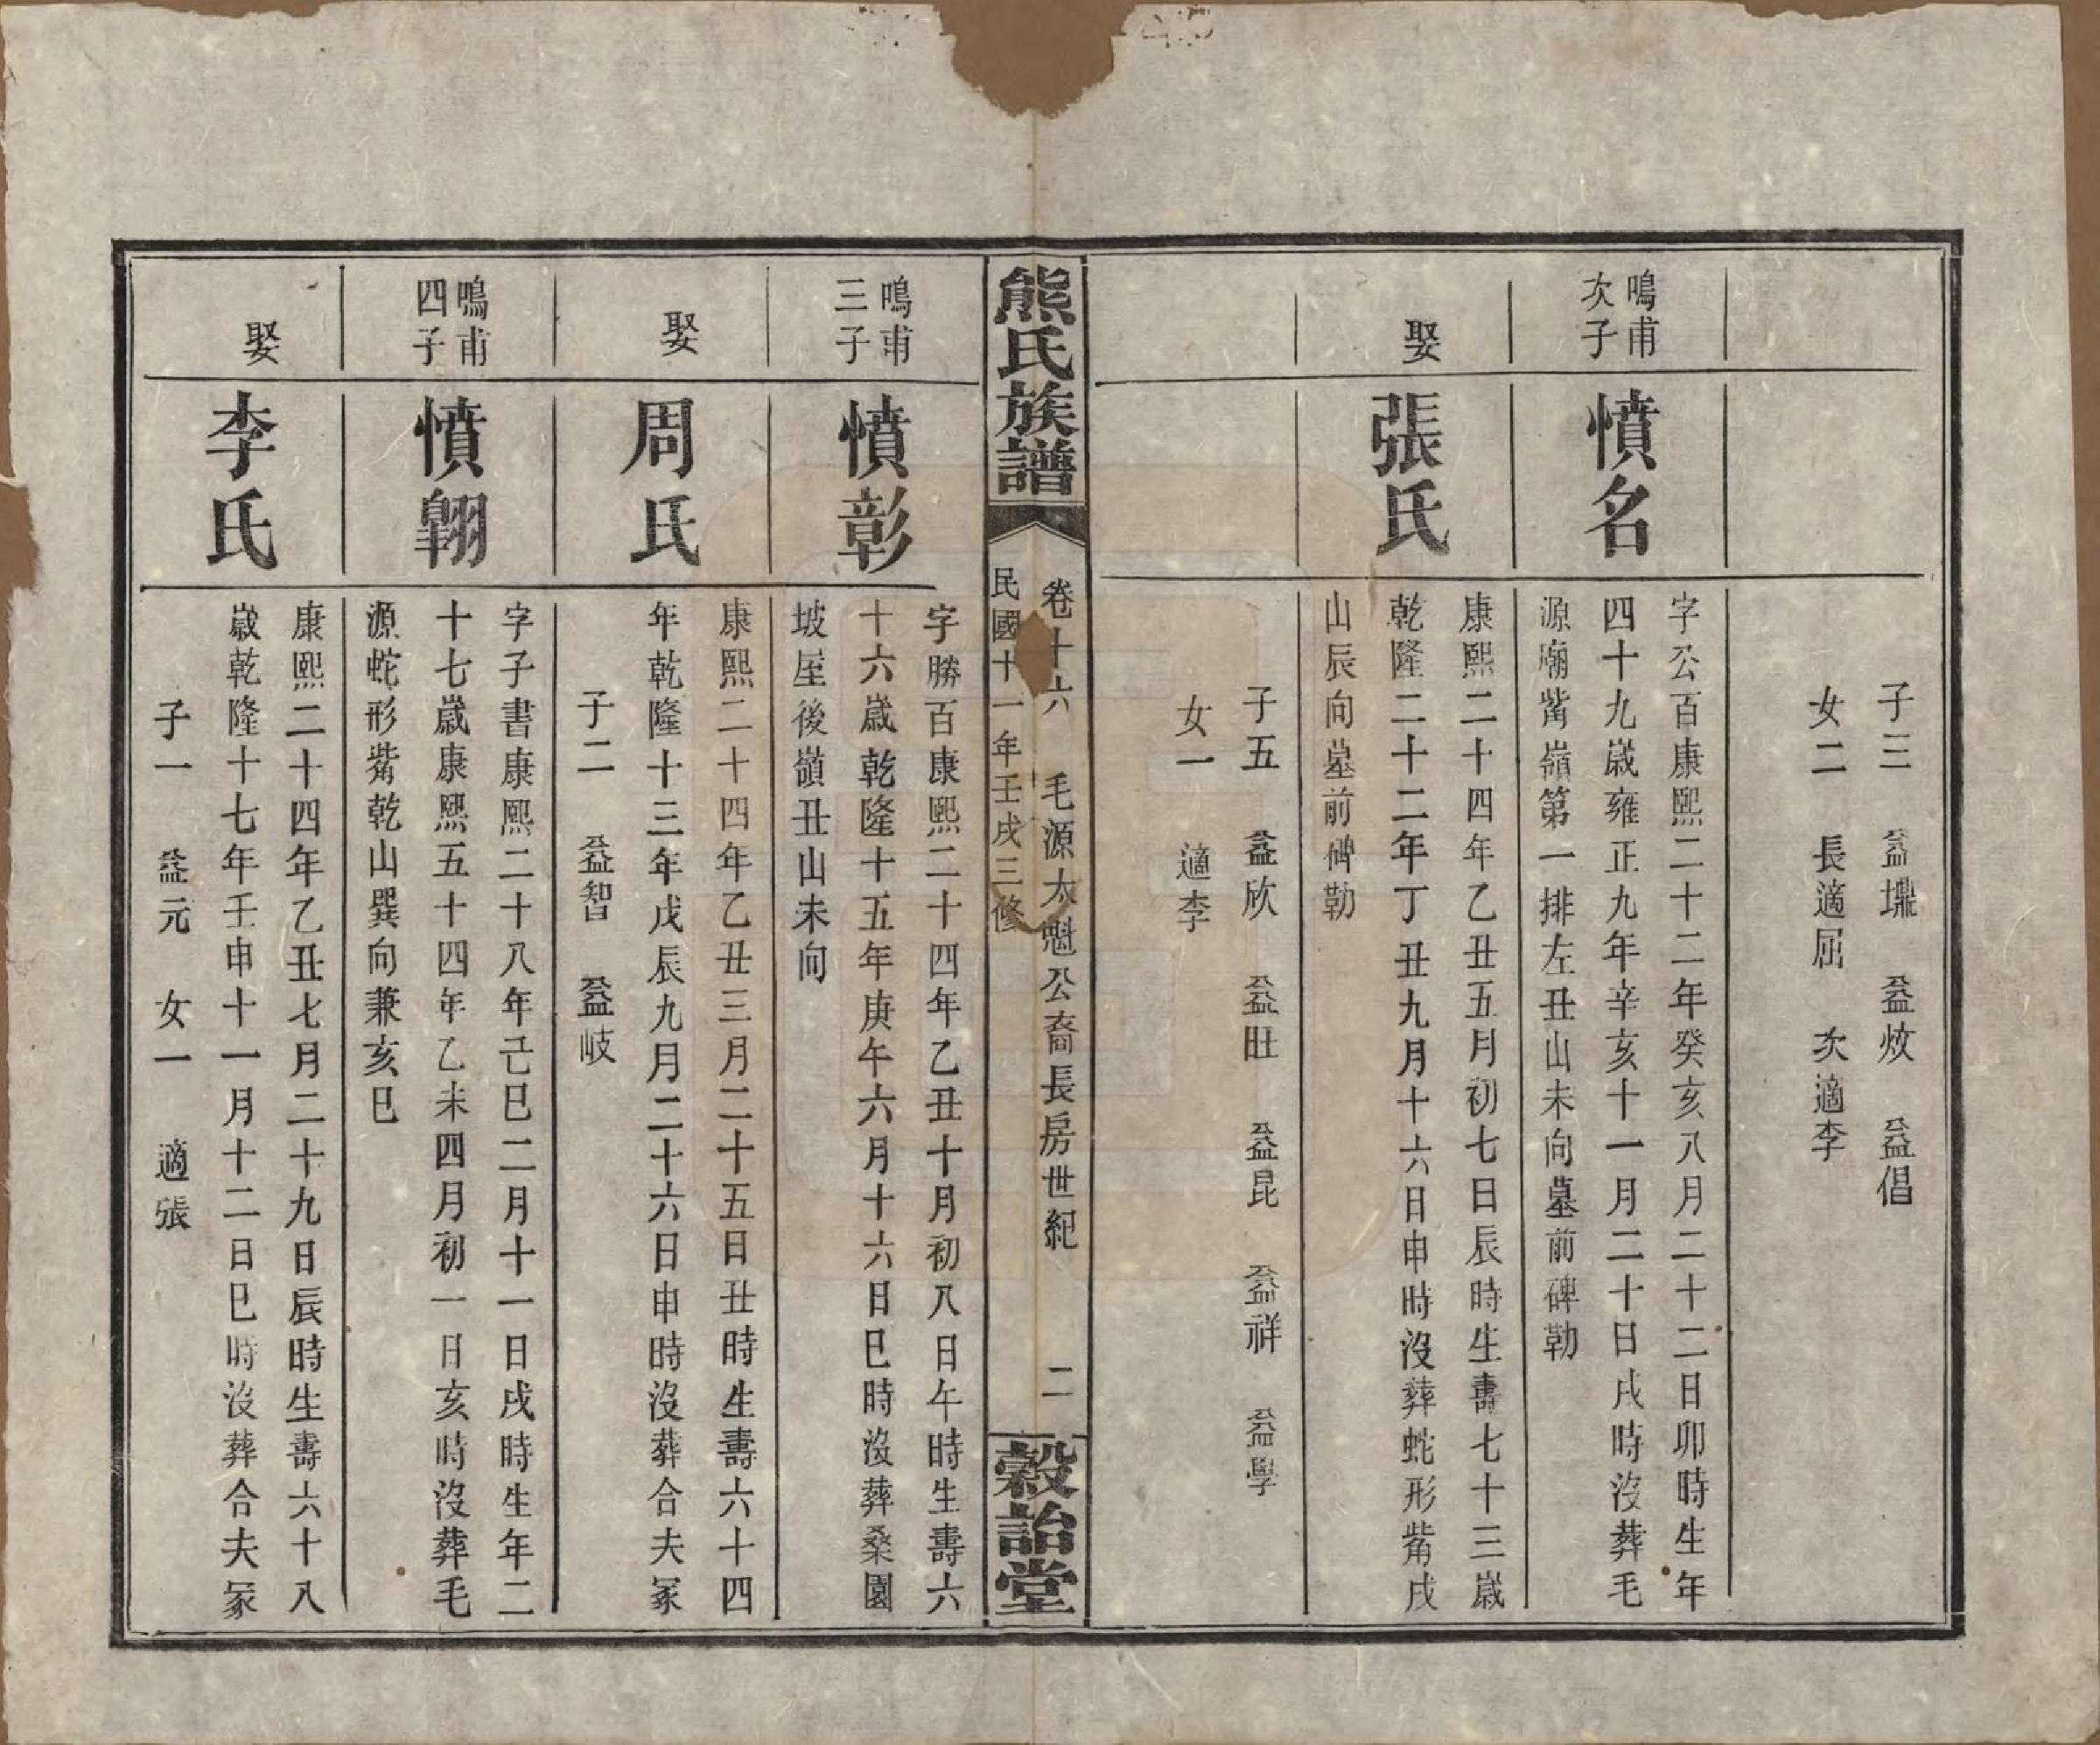 子三　益㙷　益炆　益倡
女二　長適屈　次適李
鳴甫
次子
憤名
字公百康熙二十二年癸亥八月二十二日卯時生年
四十九歲雍正九年辛亥十一月二十日戌時沒葬毛
源廟觜嶺第一排左丑山未向墓前碑勒
娶
張氏
康熙二十四年乙丑五月初七日辰時生壽七十三歲
乾隆二十二年丁丑九月十六日申時沒葬蛇形觜戌
山辰向墓前碑勒
子五　益欣　益旺　益昆　益祥　益學
女一　適李
熊氏族譜
卷十六　毛源太魁公裔長房世紀　二
民國十一年壬戌三修
穀詒堂
鳴甫
三子
憤彰
字勝百康熙二十四年乙丑十月初八日午時生壽六
十六歲乾隆十五年庚午六月十六日巳時沒葬桑園
坡屋後嶺丑山未向
娶
周氏
康熙二十四年乙丑三月二十五日丑時生壽六十四
年乾隆十三年戊辰九月二十六日申時沒葬合夫冢
子二　益智　益岐
鳴甫
四子
憤翺
字子書康熙二十八年己巳二月十一日戌時生年二
十七歲康熙五十四年乙未四月初一日亥時沒葬毛
源蛇形觜乾山巽向兼亥巳
娶
李氏
康熙二十四年乙丑七月二十九日辰時生壽六十八
歲乾隆十七年壬申十一月十二日巳時沒葬合夫冢
子一　益元　女一　適張